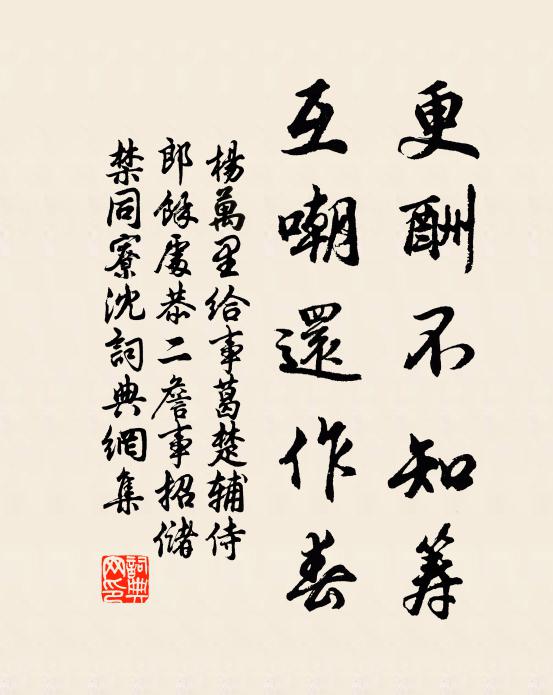 更酬不知筭
互嘲還作春
楊萬里給事葛楚輔侍
郎餘處恭二詹事招儲
禁同寮沈詞典網集
詞典网印